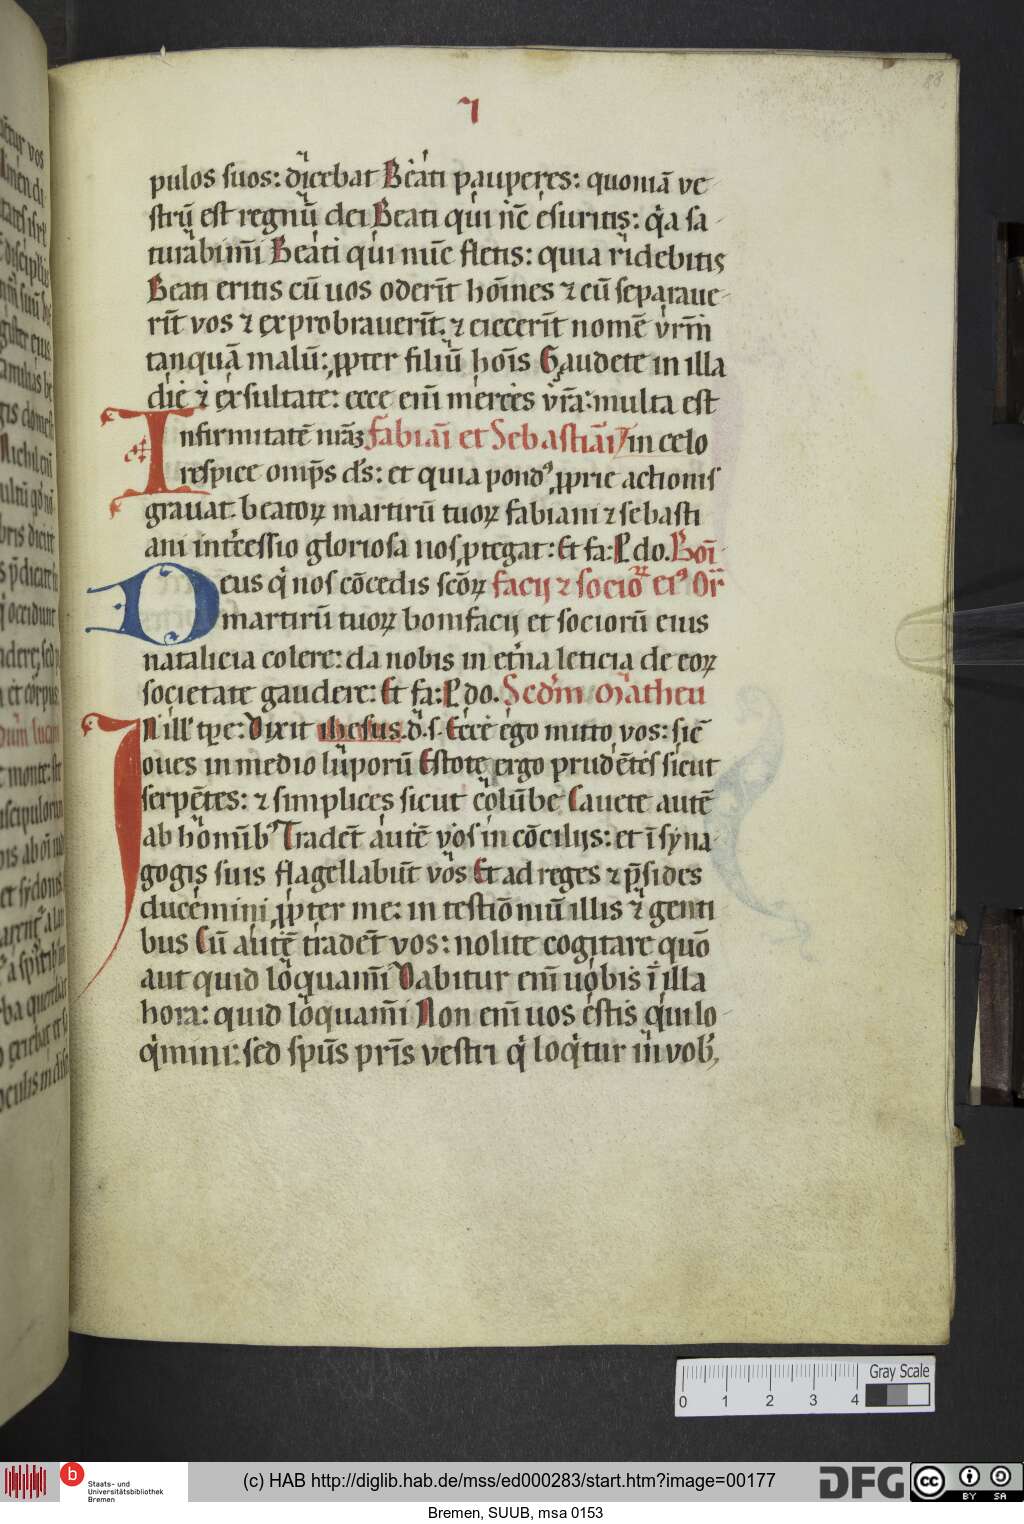 88
pulos suos: dicebat Beati pauperes: quoniā ve
strū est regnū dei Beati qui nc̄ esuritis: qͥa sa
turabimī Beati qui nūc fletis: quia ridebitis
Beati eritis cū uos oderīt hoīes ⁊ cū separaue
rīt vos ⁊ exprobrauerīt. ⁊ eiecerīt nomē vr̄m
tanquā malū: ꝓpter filiū hoīs Gaudete in illa
die ⁊ exsultate: ecce enī merces vr̄a: multa est
Infirmitatē nr̄aȝ fabiāi et Sebastiāi in celo
respice omp̄s ds̄: et quia pondꝰ ꝓprie actionis
grauat. beatoꝝ martirū tuoꝝ fabiani ⁊ sebasti
ani int̄cessio gloriosa nos ꝓtegat: Et fa: P do. Boī
Deus qͥ nos cōcedis scōꝝ facij ⁊ socioꝝ eiꝰ Or̄
martirū tuoꝝ bonifacij et sociorū eius
natalicia colere: da nobis in et̄na leticia de eoꝝ
societate gaudere: Et fa: P do. Scdm̄ Matheū
In ill' tp̄e: Dixit ihesus. d. s. Ecce ego mitto vos: sic̄
oues in medio luporū Estote ergo prudētes sicut
serpētes: ⁊ simplices sicut colūbe Cauete autē
ab homībꝰ Tradēt autē vos in cōcilijs: et ī syna
gogis suis flagellabūt vos Et ad reges ⁊ p̄sides
ducemini ꝓpter me: in testiōniū illis ⁊ genti
bus Cū autē tradēt vos: nolite cogitare quō
aut quid loquamī Dabitur enī uobis ī illa
hora: quid loquamī Non enī uos estis qui lo
qͥmini: sed spūs prīs vestri qͥ loqͥtur in vobꝭ
0 1 2 3 4 Gray Scale
b Staats- und
Universitätsbibliothek
Bremen
(c) HAB http://diglib.hab.de/mss/ed000283/start.htm?image=00177
DFG
cc BY SA
Bremen, SUUB, msa 0153